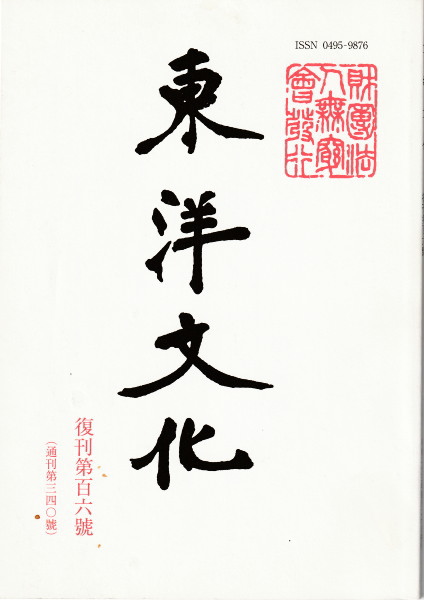 ISSN 0495-9876
財團法
人無窮
會發行
東洋文化
復刊第百六號
（通刊第三四〇號）